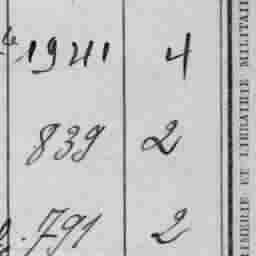 1941 4
839 2
791 2
IMERIE ET LIBRAIRIE MILITAI